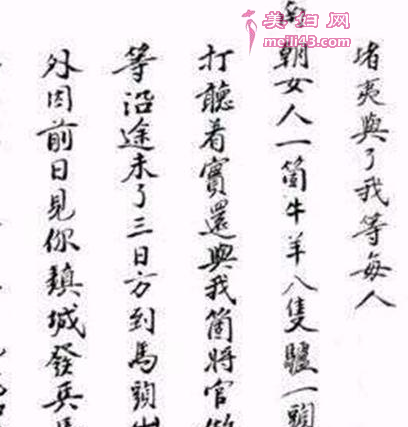 美妇网
meili43.com
堵夷與了我等每人
南朝女人一箇牛羊八隻驢一頭
打聽着實還與我箇將官
等沿途未了三日方到馬頭
外因前日見你鎮城發兵